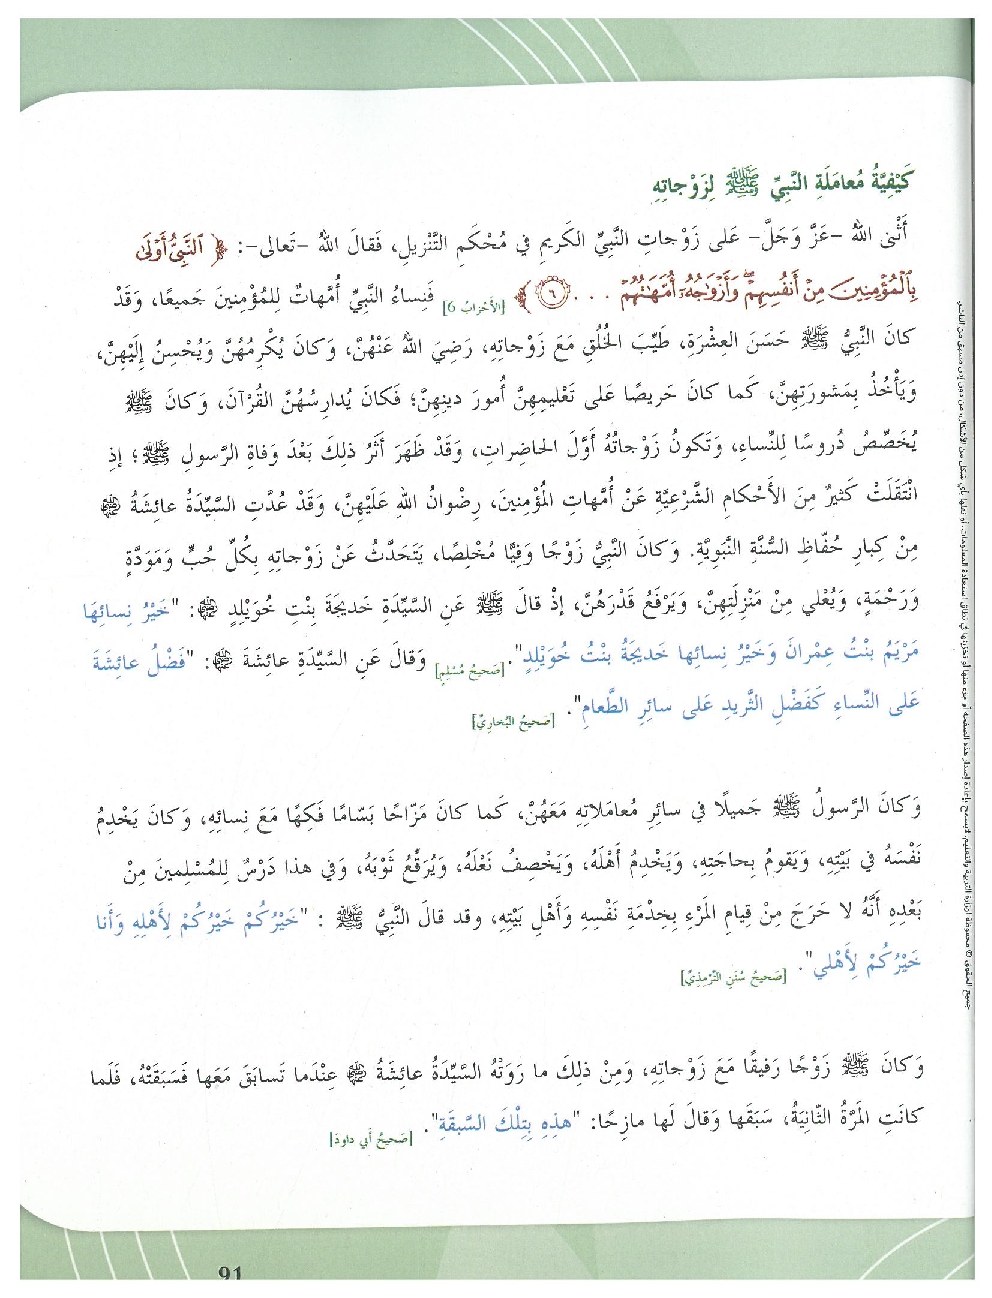 كَيْفِيَّةُ مُعامَلَةِ النَّبِيِّ ﷺ لِزَوْجاتِهِ
أَثْنى اللهُ -عَزَّ وَجَلَّ- عَلى زَوْجاتِ النَّبِيِّ الكَريمِ في مُحْكَمِ التَّنْزيلِ، فَقالَ اللهُ -تَعالى-: ﴿ ٱلنَّبِيُّ أَوۡلَىٰ
بِٱلۡمُؤۡمِنِينَ مِنۡ أَنفُسِهِمۡۖ وَأَزۡوَٰجُهُۥٓ أُمَّهَٰتُهُمۡ ... ٦ ﴾ [الأَحْزاب 6] فَنِساءُ النَّبِيِّ أُمَّهاتٌ لِلمُؤْمِنينَ جَميعًا، وَقَدْ
كانَ النَّبِيُّ ﷺ حَسَنَ العِشْرَةِ، طَيِّبَ الخُلُقِ مَعَ زَوْجاتِهِ، رَضِيَ اللهُ عَنْهُنَّ، وَكانَ يُكْرِمُهُنَّ وَيُحْسِنُ إِلَيْهِنَّ،
وَيَأْخُذُ بِمَشورَتِهِنَّ، كَما كانَ حَريصًا عَلى تَعْليمِهِنَّ أُمورَ دينِهِنَّ؛ فَكانَ يُدارِسُهُنَّ القُرْآنَ، وَكانَ ﷺ
يُخَصِّصُ دُروسًا لِلنِّساءِ، وَتَكونُ زَوْجاتُهُ أَوَّلَ الحاضِراتِ، وَقَدْ ظَهَرَ أَثَرُ ذلِكَ بَعْدَ وَفاةِ الرَّسولِ ﷺ؛ إِذِ
انْتَقَلَتْ كَثيرٌ مِنَ الأَحْكامِ الشَّرْعِيَّةِ عَنْ أُمَّهاتِ المُؤْمِنينَ، رِضْوانُ اللهِ عَلَيْهِنَّ، وَقَدْ عُدَّتِ السَّيِّدَةُ عائِشَةُ
مِنْ كِبارِ حُفّاظِ السُّنَّةِ النَّبَوِيَّةِ. وَكانَ النَّبِيُّ زَوْجًا وَفِيًّا مُخْلِصًا، يَتَحَدَّثُ عَنْ زَوْجاتِهِ بِكُلِّ حُبٍّ وَمَوَدَّةٍ
وَرَحْمَةٍ، وَيُعْلي مِنْ مَنْزِلَتِهِنَّ، وَيَرْفَعُ قَدْرَهُنَّ، إِذْ قالَ ﷺ عَنِ السَّيِّدَةِ خَديجَةَ بِنْتِ خُوَيْلِدٍ : "خَيْرُ نِسائِهَا
مَرْيَمُ بِنْتُ عِمْرانَ وَخَيْرُ نِسائِها خَديجَةُ بِنْتُ خُوَيْلِدٍ". [صَحيحُ مُسْلِمٍ] وَقالَ عَنِ السَّيِّدَةِ عائِشَةَ : "فَضْلُ عائِشَةَ
عَلى النِّساءِ كَفَضْلِ الثَّريدِ عَلى سائِرِ الطَّعامِ". [صَحيحُ البُخارِيِّ]
وَكانَ الرَّسولُ ﷺ جَميلًا في سائِرِ مُعامَلاتِهِ مَعَهُنَّ، كَما كانَ مَزّاحًا بَسّامًا فَكِهًا مَعَ نِسائِهِ، وَكانَ يَخْدِمُ
نَفْسَهُ في بَيْتِهِ، وَيَقومُ بِحاجَتِهِ، وَيَخْدِمُ أَهْلَهُ، وَيَخْصِفُ نَعْلَهُ، وَيُرَقِّعُ ثَوْبَهُ، وَفي هذا دَرْسٌ لِلمُسْلِمينَ مِنْ
بَعْدِهِ أَنَّهُ لا حَرَجَ مِنْ قِيامِ المَرْءِ بِخِدْمَةِ نَفْسِهِ وَأَهْلِ بَيْتِهِ، وقد قالَ النَّبِيُّ ﷺ : "خَيْرُكُمْ خَيْرُكُمْ لِأَهْلِهِ وَأَنا
خَيْرُكُمْ لِأَهْلي". [صَحيحُ سُنَنِ التِّرْمِذِيِّ]
وَكانَ ﷺ زَوْجًا رَفيقًا مَعَ زَوْجاتِهِ، وَمِنْ ذلِكَ ما رَوَتْهُ السَّيِّدَةُ عائِشَةُ عِنْدَما تَسابَقَ مَعَها فَسَبَقَتْهُ، فَلَما
كانَتِ المَرَّةُ الثّانِيَةُ، سَبَقَها وَقالَ لَها مازِحًا: "هذِهِ بِتِلْكَ السَّبقَةِ". [صَحيحُ أَبي داود]
جميع الحقوق © محفوظة لوزارة التربية والتعليم. لا يسمح بإعادة إصدار هذه الصفحة أو جزء منها أو تخزينها في نطاق استعادة المعلومات، أو نقلها بأي شكل من الأشكال، من دون إذن مسبق من الناشر.
91